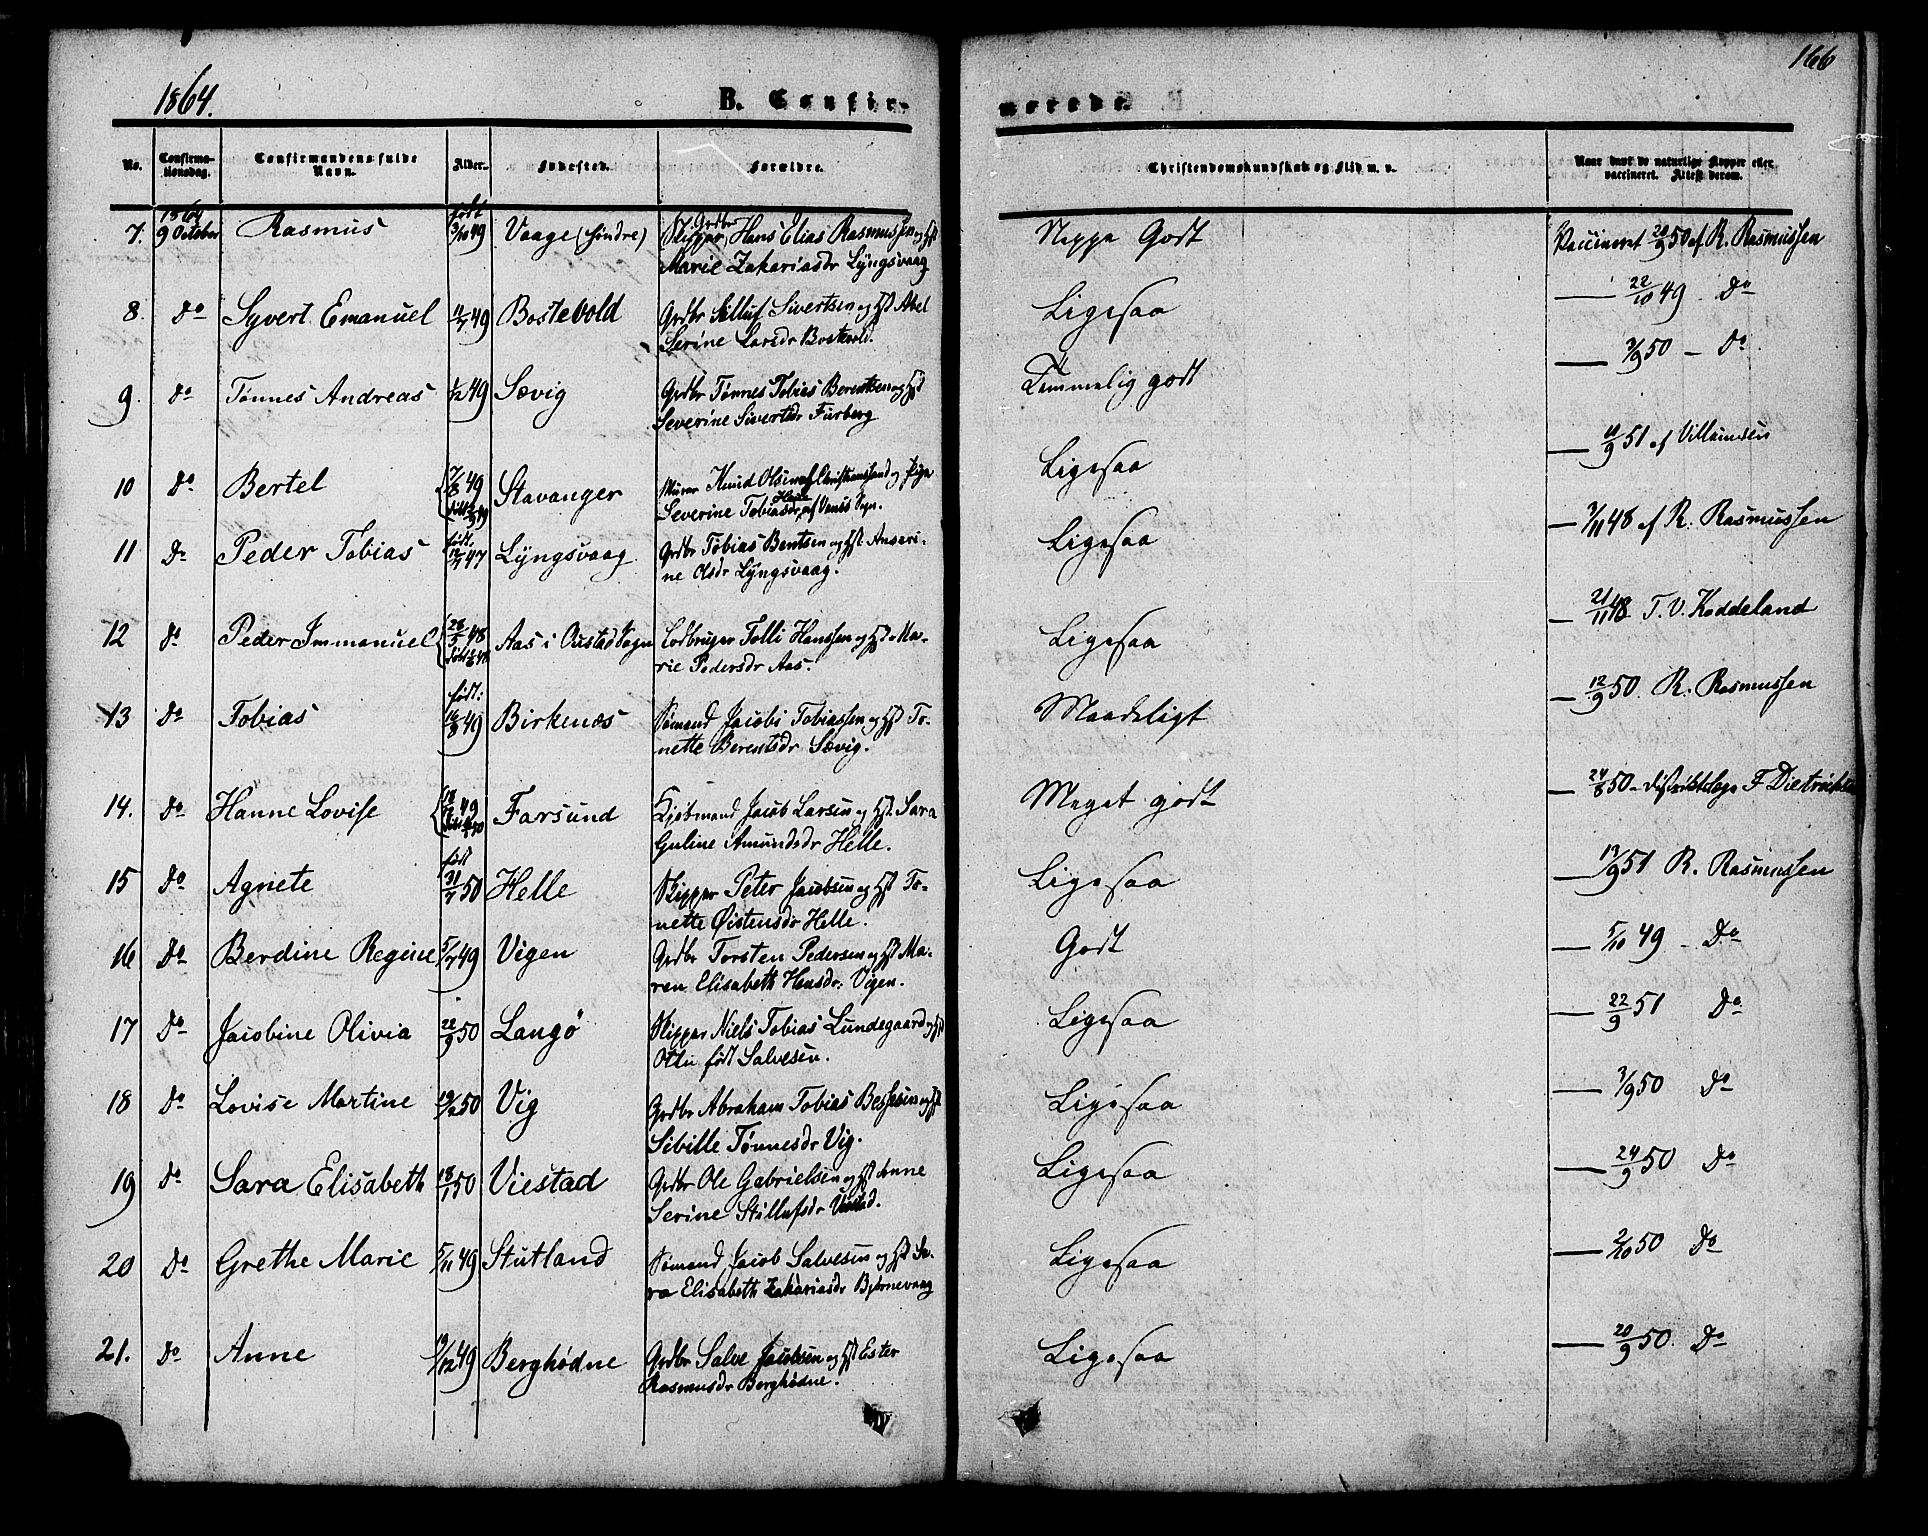 1864.
B. Confir-
merede.
166
No.
Confirma-
tionsdag.
Confirmandens fulde
Navn.
Alder.
Fødested.
Forældre.
Christendomskundskab og Flid m. v.
Naar havt de naturlige Kopper eller
vaccineret. Attest derom.
7. 1864 9 October Rasmus født 3/10 49 Vaage (søndre) Skipper, Grdbr Hans Elias Rasmussen og Hst
Marie Zakariasdr Lÿngsvaag
Neppe Godt
Vaccineret 20/9 50 af R. Rasmussen
8. Do Syvert Emanuel 11/7 49 Bostevold Grdbr Silluf Sivertsen og Hst Abel
Serine Larsdr Bostvold.
Ligesaa
— 22/10 49 - Do
9. Do Tønnes Andreas 1/12 49 Sævig Grdbr Tønnes Tobias Berentsen og Hst
Severine Sivertsdr Furberg
Temmelig godt
— 3/9 50 - Do
10 Do Bertel 7/8 49 Stavanger Murer Knud Olsen af Christianssand og Pige
Severine Tobiasdr Helle af Vanss Sogn.
Ligesaa
— 11/9 51 af Villumsen
11 Do Peder Tobias født 12/7 47 Lÿngsvaag Grdbr Tobias Bentsen og Hst Ansari-
ne Olsdr Lÿngsvaag.
Ligesaa
— 3/11 48 af R. Rasmussen
12 Do Peder Immanuel 28/5 48 Aas i Oustad Sogn Lodbruger Tolli Hanssen og Hst Ma-
rie Pedersdr Aas.
Ligesaa
— 21/11 48 T. V. Kaddeland
13 Do Tobias født: 16/8 49 Birkenæs Sømand Jacobi Tobiassen og Hst To-
nette Berentsdr Sævig.
Maadeligt
— 12/9 50. R. Rasmussen
14. Do Hanne Lovise Farsund Kjøbmand Jacob Larsen og Hst. Sara
Guline Amundsdr Helle.
Meget godt
— 24/8 50 - Distriktslæge F Dietrichsen
15 Do Agnete født 31/7 50 Helle Skipper Peter Jacobsen og Hst To-
nette Øistensdr Helle.
Ligesaa
— 13/9 51 R. Rasmussen
16 Do Berdine Regine 5/7 49 Vigen Grdbr Torsten Pedersen og Hst Ma-
ren Elisabeth Hansdr. Vigen.
Godt
— 5/10 49 - Do
17 Do Jacobine Olivia 22/9 50 Langø Skipper Niels Tobias Lundegaard og Hst
Otlu født Salvesen.
Ligesaa
— 22/9 51 Do
18 Do Lovise Martine 19/2 50 Vig Grdbr Abraham Tobias Bessesen og Hst
Sibille Tønnesdr Vig.
Ligesaa
— 3/9 50 Do
19 Do Sara Elisabeth 18/1 50 Viestad Grdbr Ole Gabrielsen og Hst Anne
Serine Stillufsdr Viestad.
Ligesaa
— 24/9 50 Do
20 Do Grethe Marie 5/11 49 Stutland Sømand Jacob Salvesen og Hst Sa-
ra Elisabeth Zakariasdr Bjørnevaag
Ligesaa
— 2/10 50 Do
21. Do Anne 19/12 49 Berghødne Grdbr Salve Jacobsen og Hst Ester
Rasmusdr Berghødne.
Ligesaa
— 20/9 50. Do